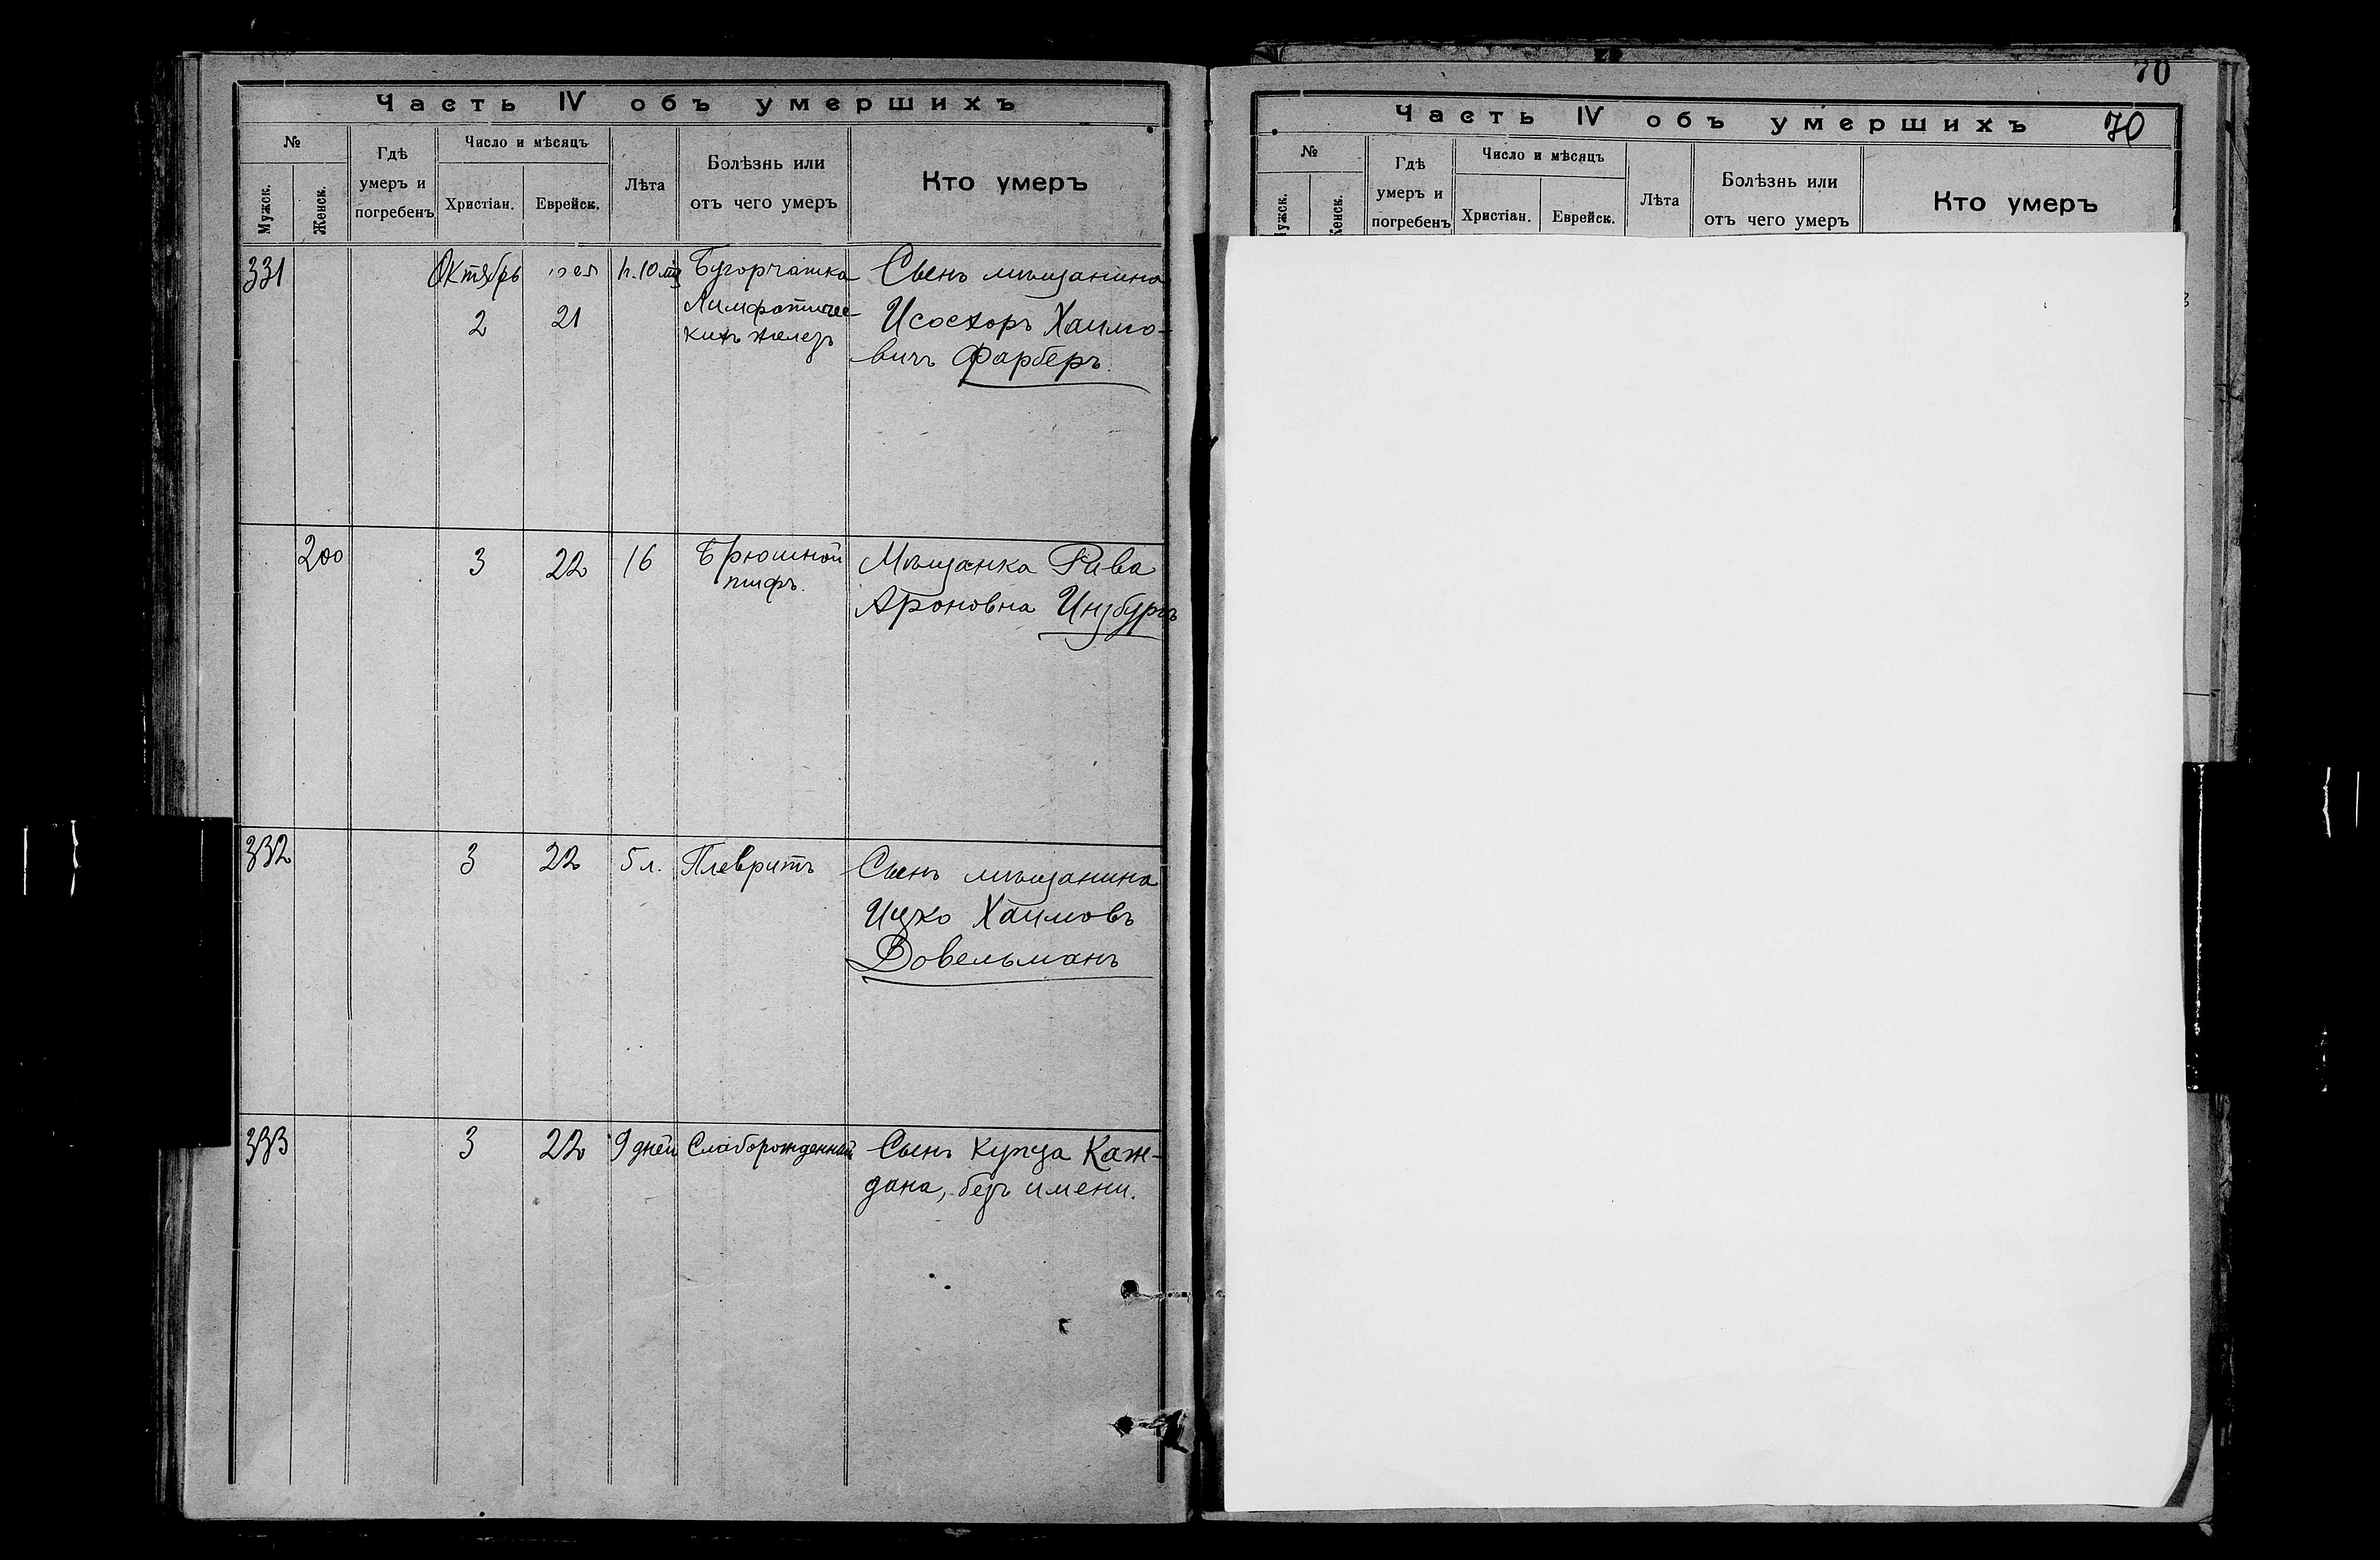 Часть IV объ умершихъ
№
Мужск.
Женск.
Гдѣ
умеръ и
погребенъ
Число и мѣсяцъ
Христіан.
Еврейск.
Лѣта
Болѣзнь или
отъ чего умеръ
Кто умеръ
331
Октябрь
2
21
Бугорчатка
Лимфатичес-
кихъ железъ
Сынъ мѣщанина
Исосхоръ Хаимо-
вичъ Фарберъ.
200
3
22
16
Брюшной
тифъ.
Мѣщанка Рива
Ароновна Инзбургъ
332
3
22
5 л.
Плевритъ
Сынъ мѣщанина
Ицко Хаимовъ
Довельманъ
333
3
22
9 дней
Слаборожденный
Сынъ купца Каж-
дана, безъ имени.
70
Часть IV объ умершихъ
70
№
Гдѣ
умеръ и
погребенъ
Число и мѣсяцъ
Христіан.
Еврейск.
Лѣта
Болѣзнь или
отъ чего умеръ
Кто умеръ